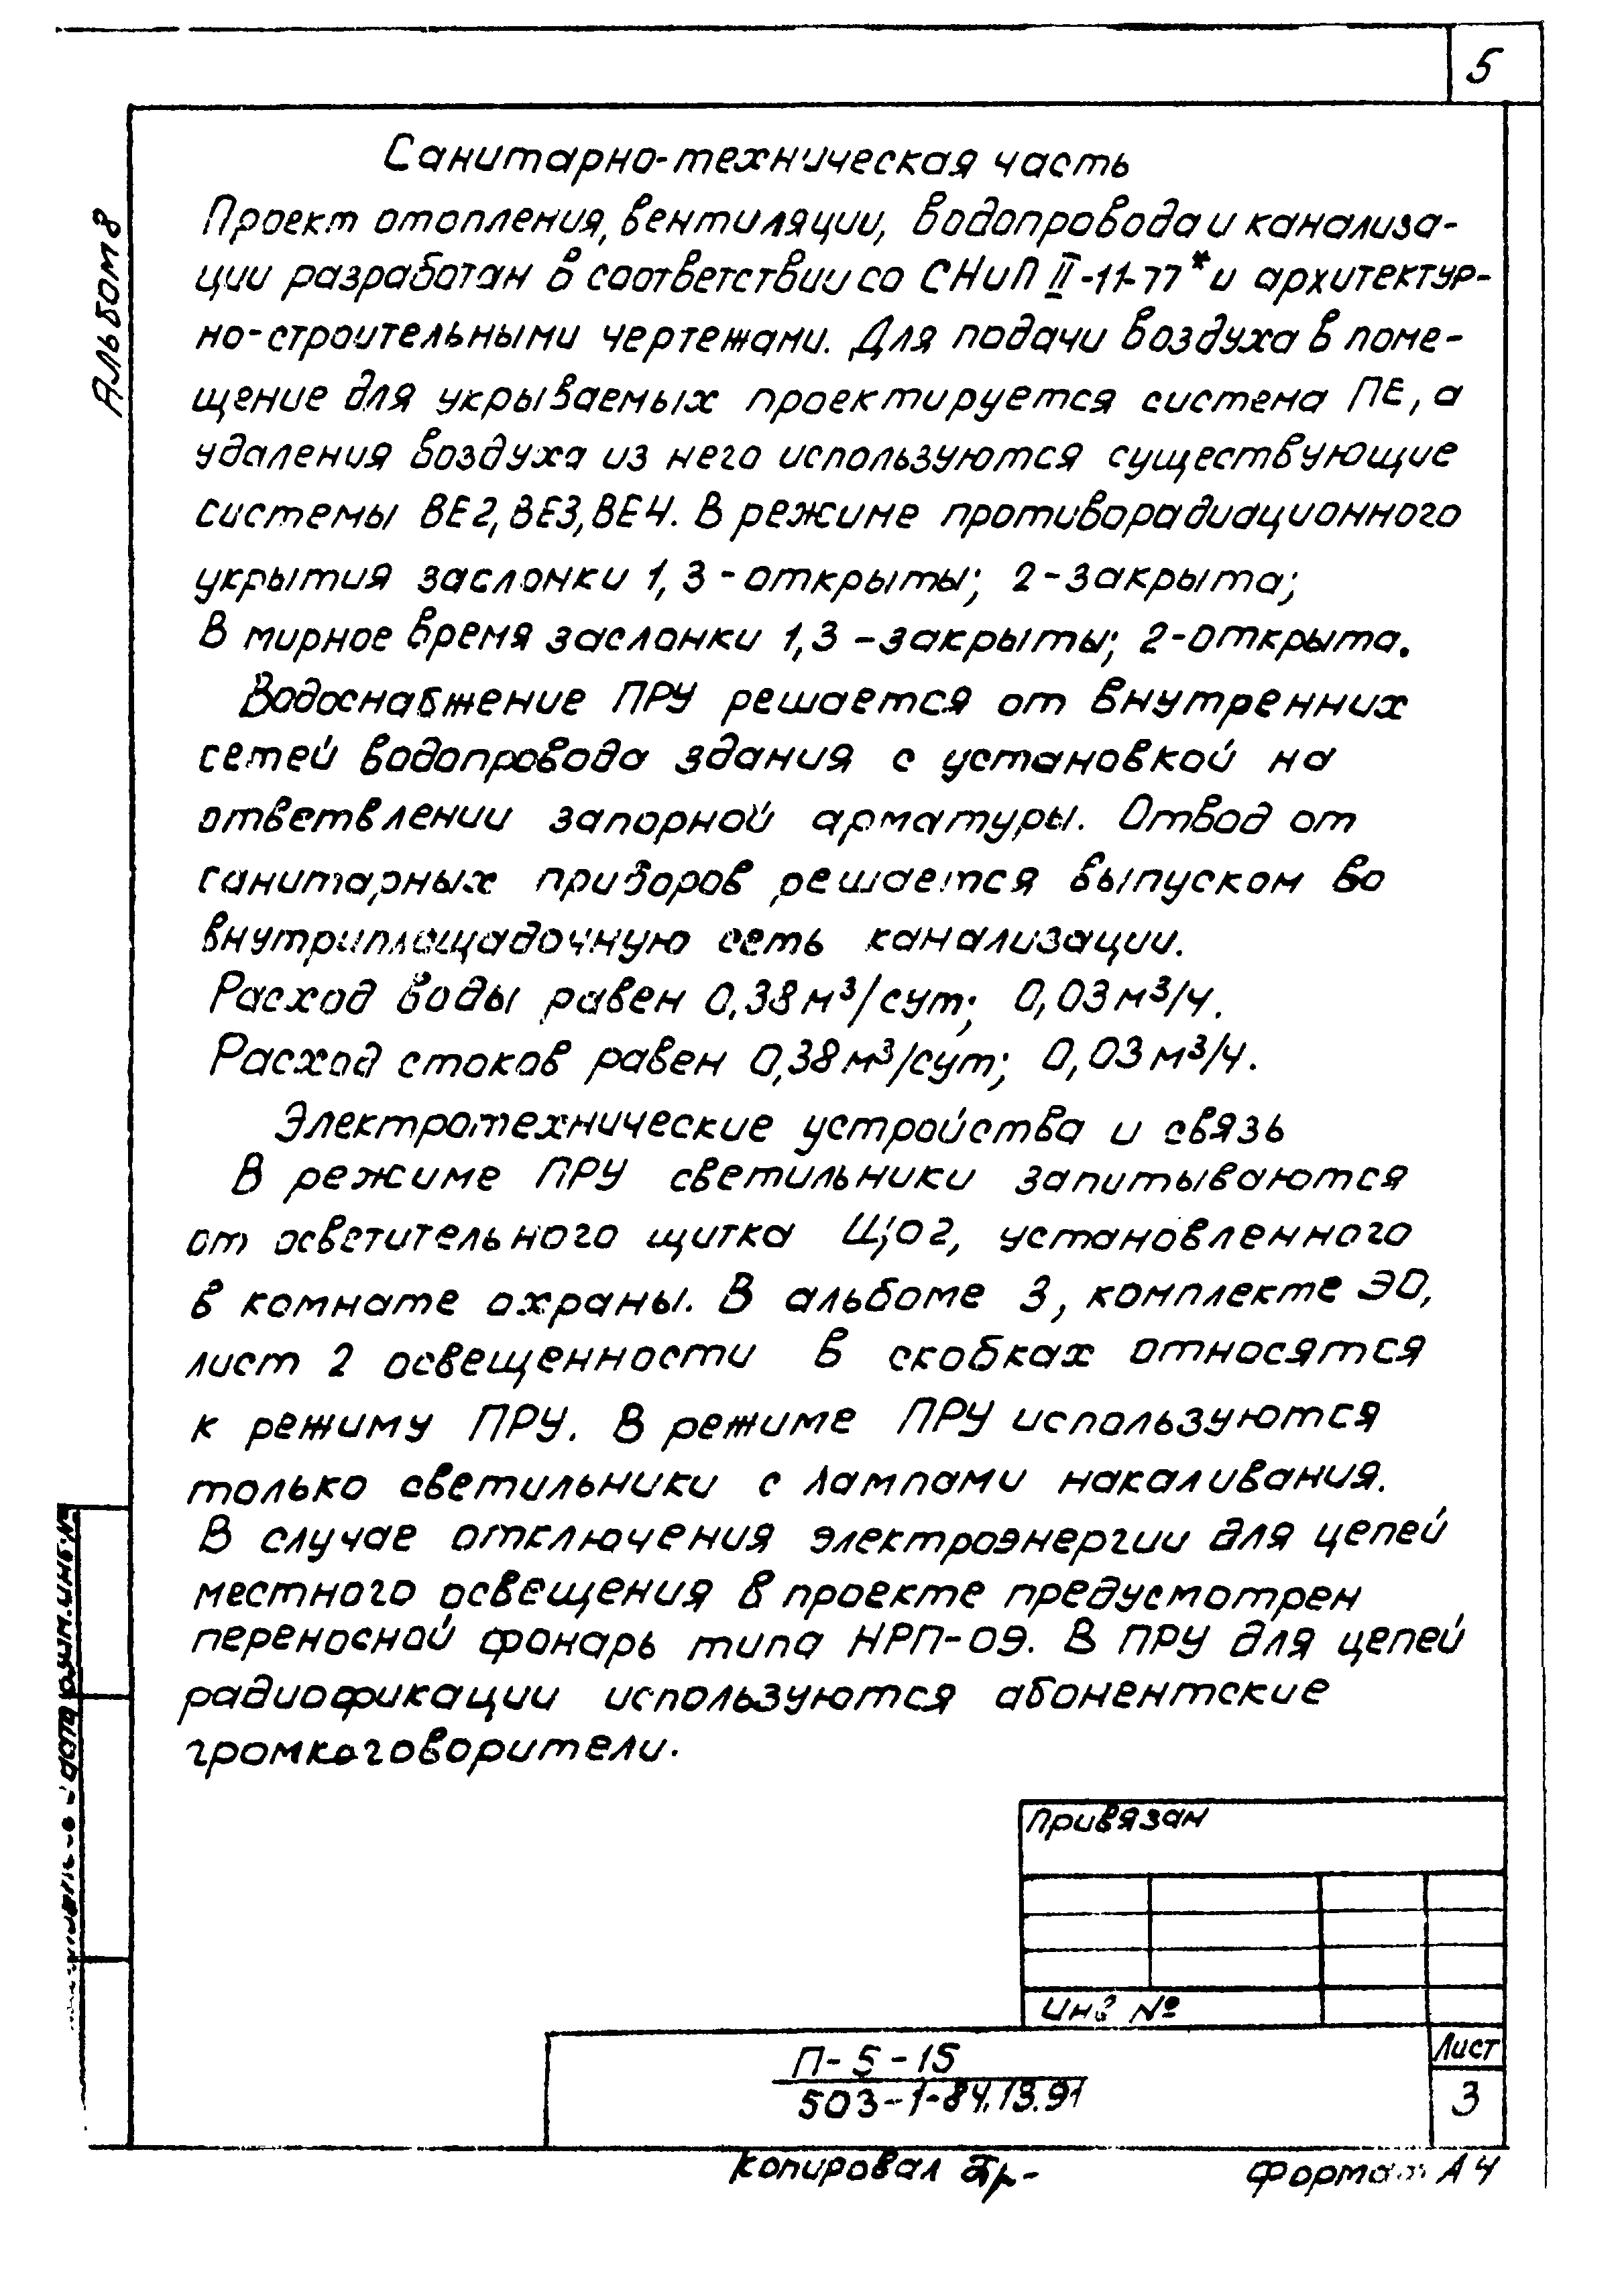 5
Альбом 8
Санитарно-техническая часть
Проект отопления, вентиляции, водопровода и канализа-
ции разработан в соответствии со СНиП II-11-77* и архитектур-
но-строительными чертежами. Для подачи воздуха в поме-
щение для укрываемых проектируется система ПЕ, а
удаления воздуха из него используются существующие
системы ВЕ2, ВЕ3, ВЕ4. В режиме противорадиационного
укрытия заслонки 1, 3 - открыты; 2 - закрыта;
В мирное время заслонки 1, 3 - закрыты; 2 - открыта.
Водоснабжение ПРУ решается от внутренних
сетей водопровода здания с установкой на
ответвлении запорной арматуры. Отвод от
санитарных приборов решается выпуском во
внутриплощадочную сеть канализации.
Расход воды равен 0,38 м³/сут; 0,03 м³/ч.
Расход стоков равен 0,38 м³/сут; 0,03 м³/ч.
Электротехнические устройства и связь
В режиме ПРУ светильники запитываются
от осветительного щитка ЩО2, установленного
в комнате охраны. В альбоме 3, комплекте ЭО,
лист 2 освещенности в скобках относятся
к режиму ПРУ. В режиме ПРУ используются
только светильники с лампами накаливания.
В случае отключения электроэнергии для цепей
местного освещения в проекте предусмотрен
переносной фонарь типа НРП-ОЭ. В ПРУ для цепей
радиофикации используются абонентские
громкоговорители.
Привязан
Инв №
П-5-15
503-1-84.13.91
Лист
3
Копировал
Формат А4